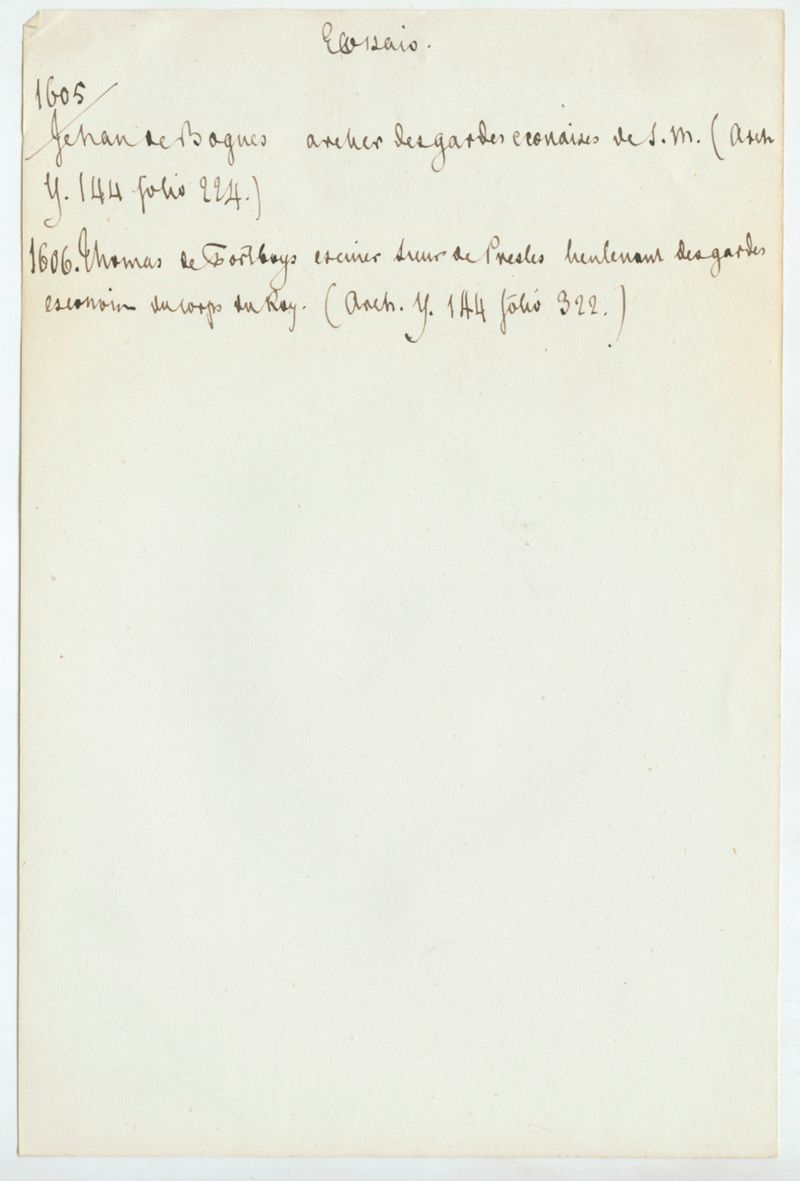 Ecossais.
1605
Jehan de Bognes archer des gardes ecossaises de S. M. (Arch
Y. 144 folio 224.)
1606. Thomas de Fortboys escuier sieur de Presles lieutenant des gardes
du corps du Roy. (Arch. Y. 144 folio 322.)